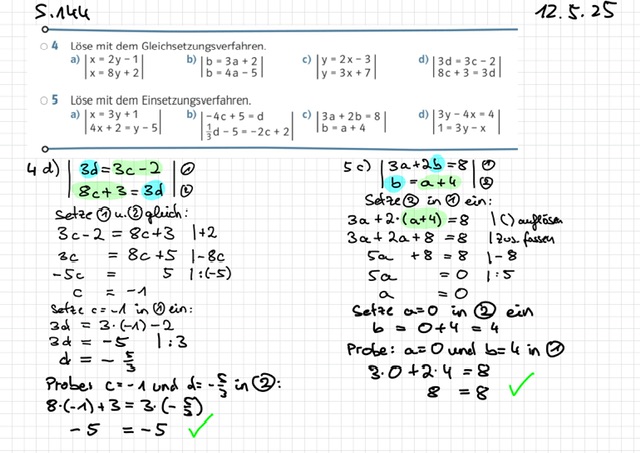 S.144
12.5.25
4 Löse mit dem Gleichsetzungsverfahren.
a) |x = 2y − 1| b) |b = 3a + 2| c) |y = 2x − 3| d) |3d = 3c − 2|
|x = 8y + 2| |b = 4a − 5| |y = 3x + 7| |8c + 3 = 3d|
5 Löse mit dem Einsetzungsverfahren.
a) |x = 3y + 1| b) |−4c + 5 = d| c) |3a + 2b = 8| d) |3y − 4x = 4|
|4x + 2 = y − 5| |1/3 d − 5 = −2c + 2| |b = a + 4| |1 = 3y − x|
4 d) | 3d = 3c − 2 | ①
| 8c + 3 = 3d | ②
Setze ① u. ② gleich:
3c − 2 = 8c + 3 |+2
3c = 8c + 5 |−8c
−5c = 5 |:(−5)
c = −1
Setze c = −1 in ① ein:
3d = 3·(−1) − 2
3d = −5 |:3
d = − 5/3
Probe: c = −1 und d = − 5/3 in ②:
8·(−1) + 3 = 3·(− 5/3)
−5 = −5 ✓
5 c) | 3a + 2b = 8 | ①
| b = a + 4 | ②
Setze ② in ① ein:
3a + 2·(a+4) = 8 |() auflösen
3a + 2a + 8 = 8 | zus. fassen
5a + 8 = 8 |−8
5a = 0 |:5
a = 0
Setze a = 0 in ② ein
b = 0 + 4 = 4
Probe: a = 0 und b = 4 in ①
3·0 + 2·4 = 8
8 = 8 ✓